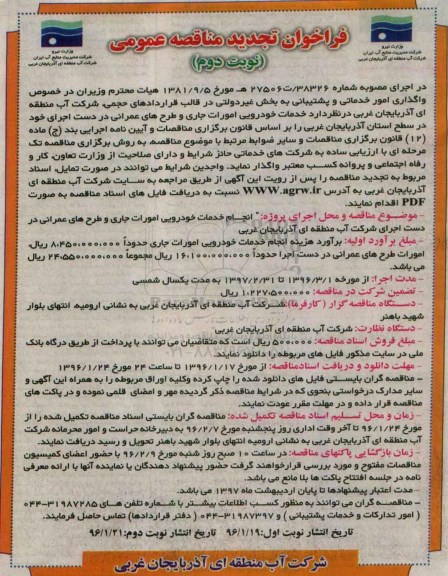 وزارت نیرو
شرکت مدیریت منابع آب ایران
شرکت آب منطقه ای آذربایجان غربی
فراخوان تجدید مناقصه عمومی
(نوبت دوم)
وزارت نیرو
شرکت مدیریت منابع آب ایران
شرکت آب منطقه ای آذربایجان غربی
در اجرای مصوبه شماره ۳۸۳۲۶/ت۲۷۵۰۶ هـ مورخ ۱۳۸۱/۹/۵ هیات محترم وزیران در خصوص
واگذاری امور خدماتی و پشتیبانی به بخش غیردولتی در قالب قراردادهای حجمی، شرکت آب منطقه
ای آذربایجان غربی درنظردارد خدمات خودرویی امورات جاری و طرح های عمرانی در دست اجرای خود
در سطح استان آذربایجان غربی را بر اساس قانون برگزاری مناقصات و آیین نامه اجرایی بند (ج) ماده
(۱۲) قانون برگزاری مناقصات و سایر ضوابط مرتبط با موضوع مناقصه، به روش برگزاری مناقصه تک
مرحله ای با ارزیابی ساده به شرکت های خدماتی حائز شرایط و دارای صلاحیت از وزارت تعاون، کار و
رفاه اجتماعی و پروانه کسب معتبر واگذار نماید. واجدین شرایط می توانند در صورت تمایل، اسناد
مربوط به تجدید مناقصه را پس از رویت این آگهی از طریق مراجعه به سایت شرکت آب منطقه ای
آذربایجان غربی به آدرس WWW.agrw.ir نسبت به دریافت فایل های اسناد مناقصه به صورت
PDF اقدام نمایند.
- موضوع مناقصه و محل اجرای پروژه: " انجام خدمات خودرویی امورات جاری و طرح های عمرانی در
دست اجرای شرکت آب منطقه ای آذربایجان غربی
- مبلغ برآورد اولیه: برآورد هزینه انجام خدمات خودرویی امورات جاری حدوداً ۸،۴۵۰،۰۰۰،۰۰۰ ریال،
امورات طرح های عمرانی در دست اجرا حدوداً ۱۶،۱۰۰،۰۰۰،۰۰۰ ریال مجموعاً ۲۴،۵۵۰،۰۰۰،۰۰۰ ریال
می باشد.
- مدت اجرا: از مورخه ۱۳۹۶/۳/۱ تا ۱۳۹۷/۲/۳۱ به مدت یکسال شمسی
- تضمین شرکت در مناقصه: ۱،۲۲۷،۵۰۰،۰۰۰ ریال
- دستگاه مناقصه گزار (کارفرما): شرکت آب منطقه ای آذربایجان غربی به نشانی ارومیه، انتهای بلوار
شهید باهنر
- دستگاه نظارت: شرکت آب منطقه ای آذربایجان غربی
- مبلغ فروش اسناد مناقصه: ۵۰۰،۰۰۰ ریال است که متقاضیان می توانند با پرداخت از طریق درگاه بانک
ملی در سایت مذکور فایل های مربوطه را دانلود نمایند.
- مهلت دانلود و دریافت اسنادمناقصه: از مورخ ۱۳۹۶/۱/۱۷ تا ساعت ۲۴ مورخ ۱۳۹۶/۱/۲۴
- مناقصه گران بایستی فایل های دانلود شده را چاپ کرده وکلیه اوراق مربوطه را به همراه این آگهی و
سایر مدارک درخواستی بنحوی که در شرایط مناقصه ذکر گردیده مهر و امضای قلمی نموده و در پاکت های
مناقصه قرار داده و در مهلت مقرر عودت نمایند.
- زمان و محل تسلیم اسناد مناقصه تکمیل شده: مناقصه گران بایستی اسناد مناقصه تکمیل شده را از
مورخ ۹۶/۱/۲۴ تا آخر وقت اداری روز پنجشنبه مورخ ۹۶/۲/۷ به دبیرخانه حراست و امور محرمانه شرکت
آب منطقه ای آذربایجان غربی به نشانی ارومیه انتهای بلوار شهید باهنر تحویل و رسید دریافت نمایند.
- زمان بازگشایی پاکتهای مناقصه: در ساعت ۱۰ صبح روز شنبه مورخ ۹۶/۲/۹ با حضور اعضای کمیسیون
مناقصات مفتوح و مورد بررسی قرارخواهند گرفت حضور پیشنهاد دهندگان یا نماینده آنها با ارائه معرفی
نامه در جلسه افتتاح پاکت ها بلا مانع می باشد.
- مدت اعتبار پیشنهادها تا پایان اردیبهشت ماه ۱۳۹۷ می باشد.
- مناقصه گران می توانند به منظور کسب اطلاعات بیشتر با شماره تلفن های ۳۱۹۸۷۲۸۵-۰۴۴
( امور تدارکات و خدمات پشتیبانی ) و ۳۱۹۸۷۳۹۷-۰۴۴ ( دفتر قراردادها) تماس حاصل فرمایند.
تاریخ انتشار نوبت اول: ۹۶/۱/۱۹ تاریخ انتشار نوبت دوم: ۹۶/۱/۲۱
شرکت آب منطقه ای آذربایجان غربی